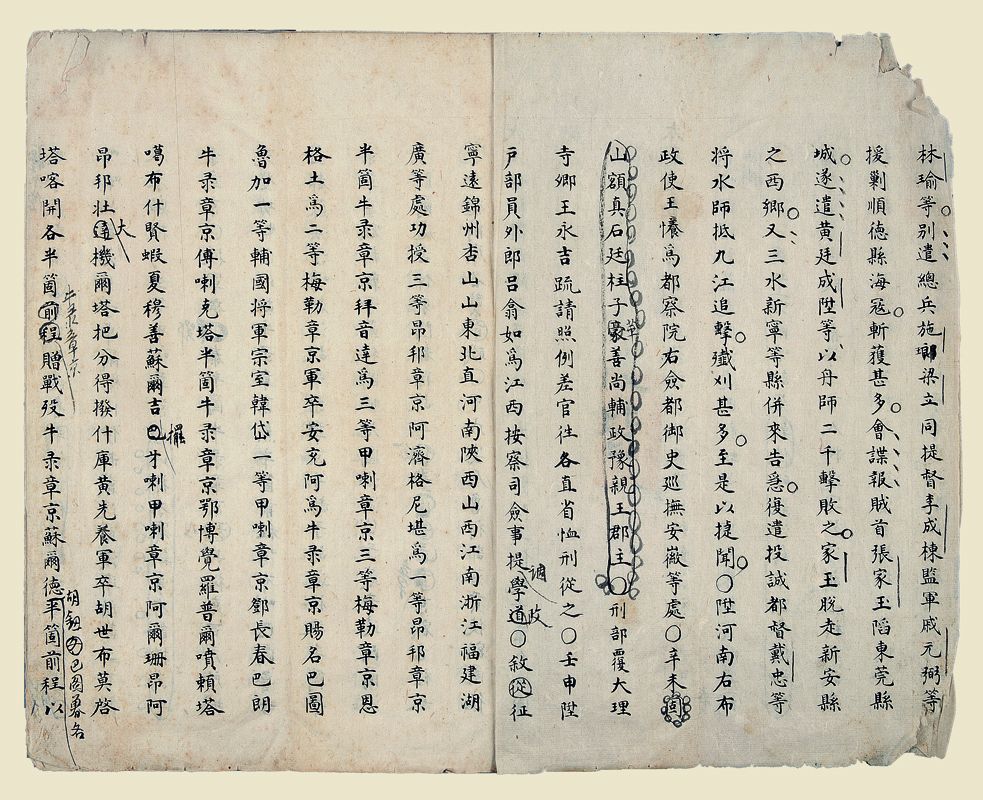 林瑜等別遣總兵施瑯梁立同提督李成棟監軍戚元弼等
援剿順德縣海寇斬獲甚多會諜報賊首張家玉陷東莞縣
城遂遣黃廷成陞等以舟師二千擊敗之家玉脫走新安縣
之西鄉又三水新寧等縣併來告急復遣投誠都督戴忠等
將水師抵九江追擊殲刈甚多至是以捷聞○陞河南右布
政使王懩為都察院右僉都御史巡撫安徽等處○辛未固
山額真石廷柱子豪善尚輔政豫親王郡主○刑部覆大理
寺卿王永吉疏請照例差官往各直省恤刑從之○壬申陞
戶部員外郎呂翕如為江西按察司僉事提學道○敘從征
調 政
寧遠錦州杏山山東北直河南陝西山西江南浙江福建湖
廣等處功授三等昂邦章京阿濟格尼堪為一等昂邦章京
半箇牛彔章京拜音達為三等甲喇章京三等梅勒章京恩
格土為二等梅勒章京軍卒安充阿為牛彔章京賜名巴圖
魯加一等輔國將軍宗室韓岱一等甲喇章京鄧長春巴朗
牛彔章京傅喇克塔半箇牛彔章京鄂博覺羅普爾噴賴塔
噶布什賢蝦夏穆善蘇爾吉巴牙喇甲喇章京阿爾珊昂阿
擺
昂邦壯達機爾塔把分得撥什庫黃先養軍卒胡世布莫啓
大
塔喀開各半箇前程贈戰歿牛彔章京蘇爾德半箇前程以
牛彔章京
巴圖魯名